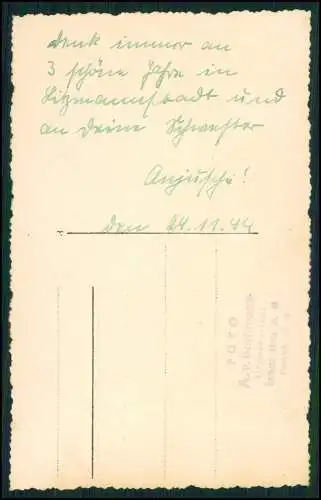 denk immer an
3 schöne Jahre in
Litzmannstadt und
an Deine Schwester
Anjuscha!
den 24.11.44
FOTO